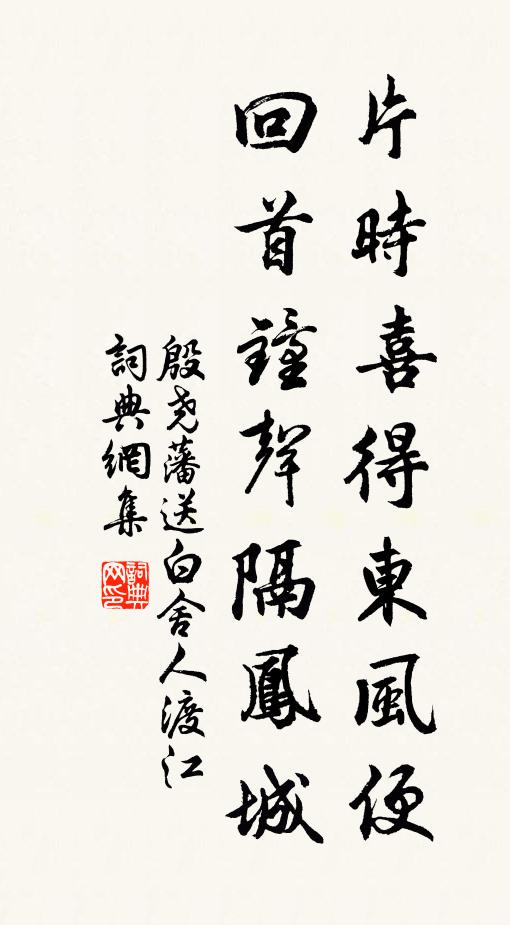 片時喜得東風便
回首鐘聲隔鳳城
殷尧藩送白舍人渡江
詞典網集
詞典网印